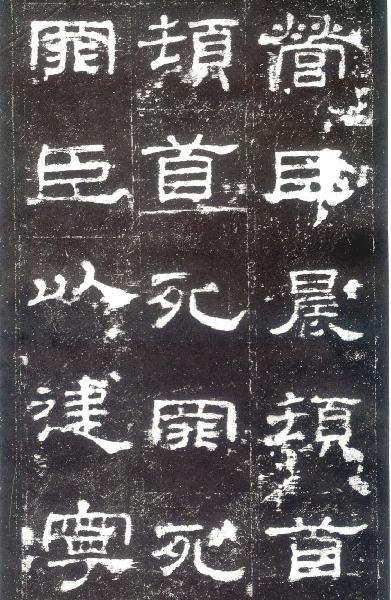 營臣晨頓首
頓首死罪死
罪臣以建寧